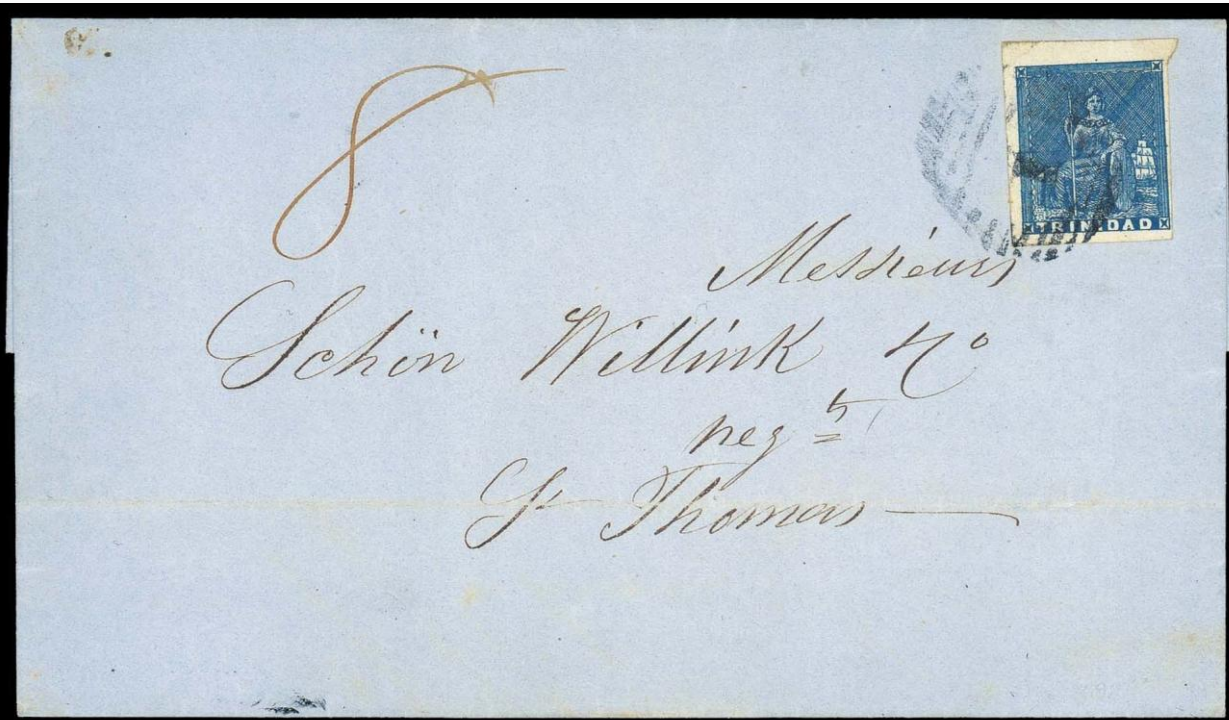 8
TRINIDAD
Messieurs
Schön Willink & Co
negts
St Thomas